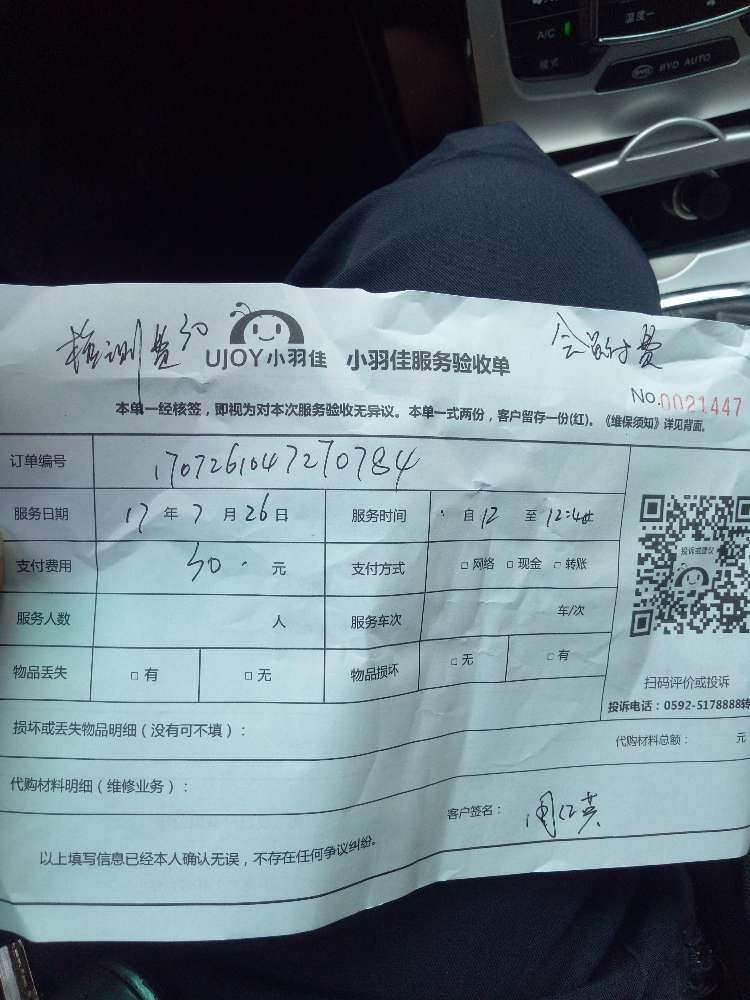 温度－
A/C
模式
BYD BYD AUTO
检测费30
UJOY小羽佳 小羽佳服务验收单
No.0021447
本单一经核签，即视为对本次服务验收无异议。本单一式两份，客户留存一份(红)。《维保须知》详见背面。
订单编号 170726104727 0784
服务日期 17 年 7 月 26 日 服务时间 自 12 至 12:40
投诉或建议
支付费用 30. 元 支付方式 □ 网络 □ 现金 □ 转账
服务人数 人 服务车次 车/次
物品丢失 □ 有 □ 无 物品损坏 □ 无 □ 有
扫码评价或投诉
投诉电话：0592-5178888转
损坏或丢失物品明细（没有可不填）：
代购材料总额： 元
代购材料明细（维修业务）：
客户签名：
以上填写信息已经本人确认无误，不存在任何争议纠纷。